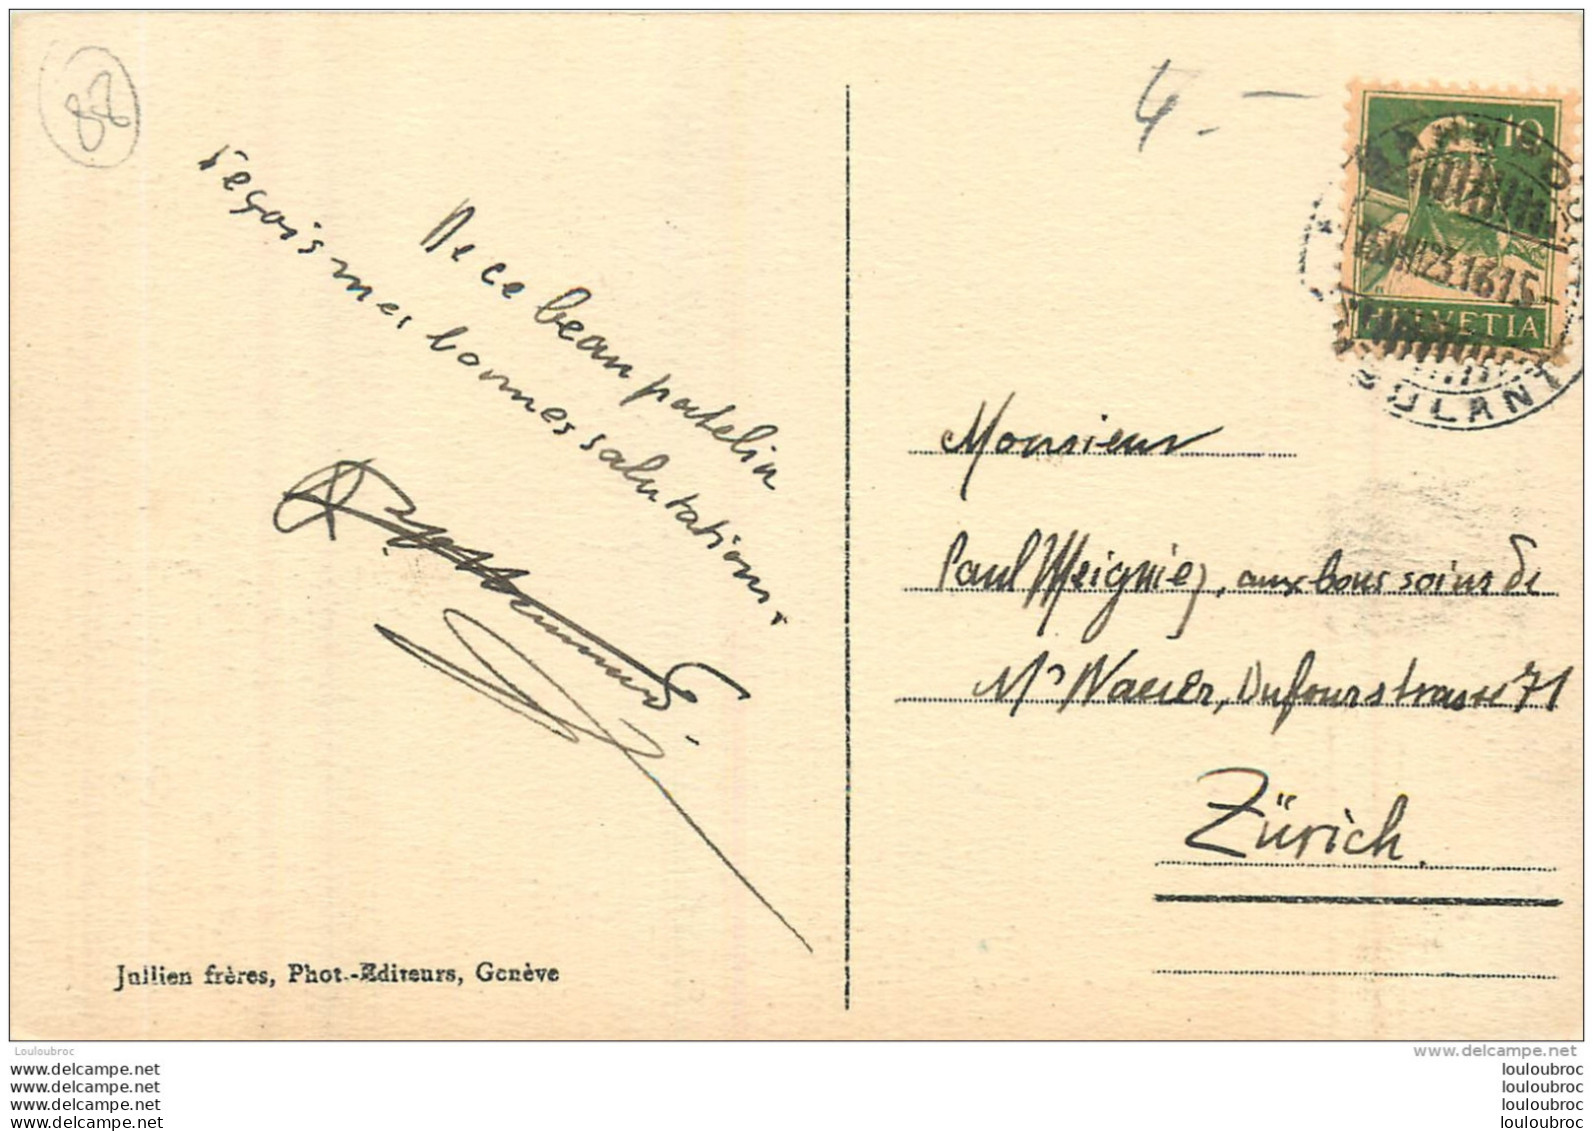 88
4.-
De ce beau patelin
reçois mes bonnes salutations.
Monsieur
Paul Meignez, aux bons soins de
Mr Naeser, Dufourstrasse 71
Zürich.
10
HELVETIA
AMBULANT
Jullien frères, Phot.-Editeurs, Genève
Louloubroc
www.delcampe.net
www.delcampe.net
www.delcampe.net
www.delcampe.net
www.delcampe.net
louloubroc
louloubroc
louloubroc
louloubroc